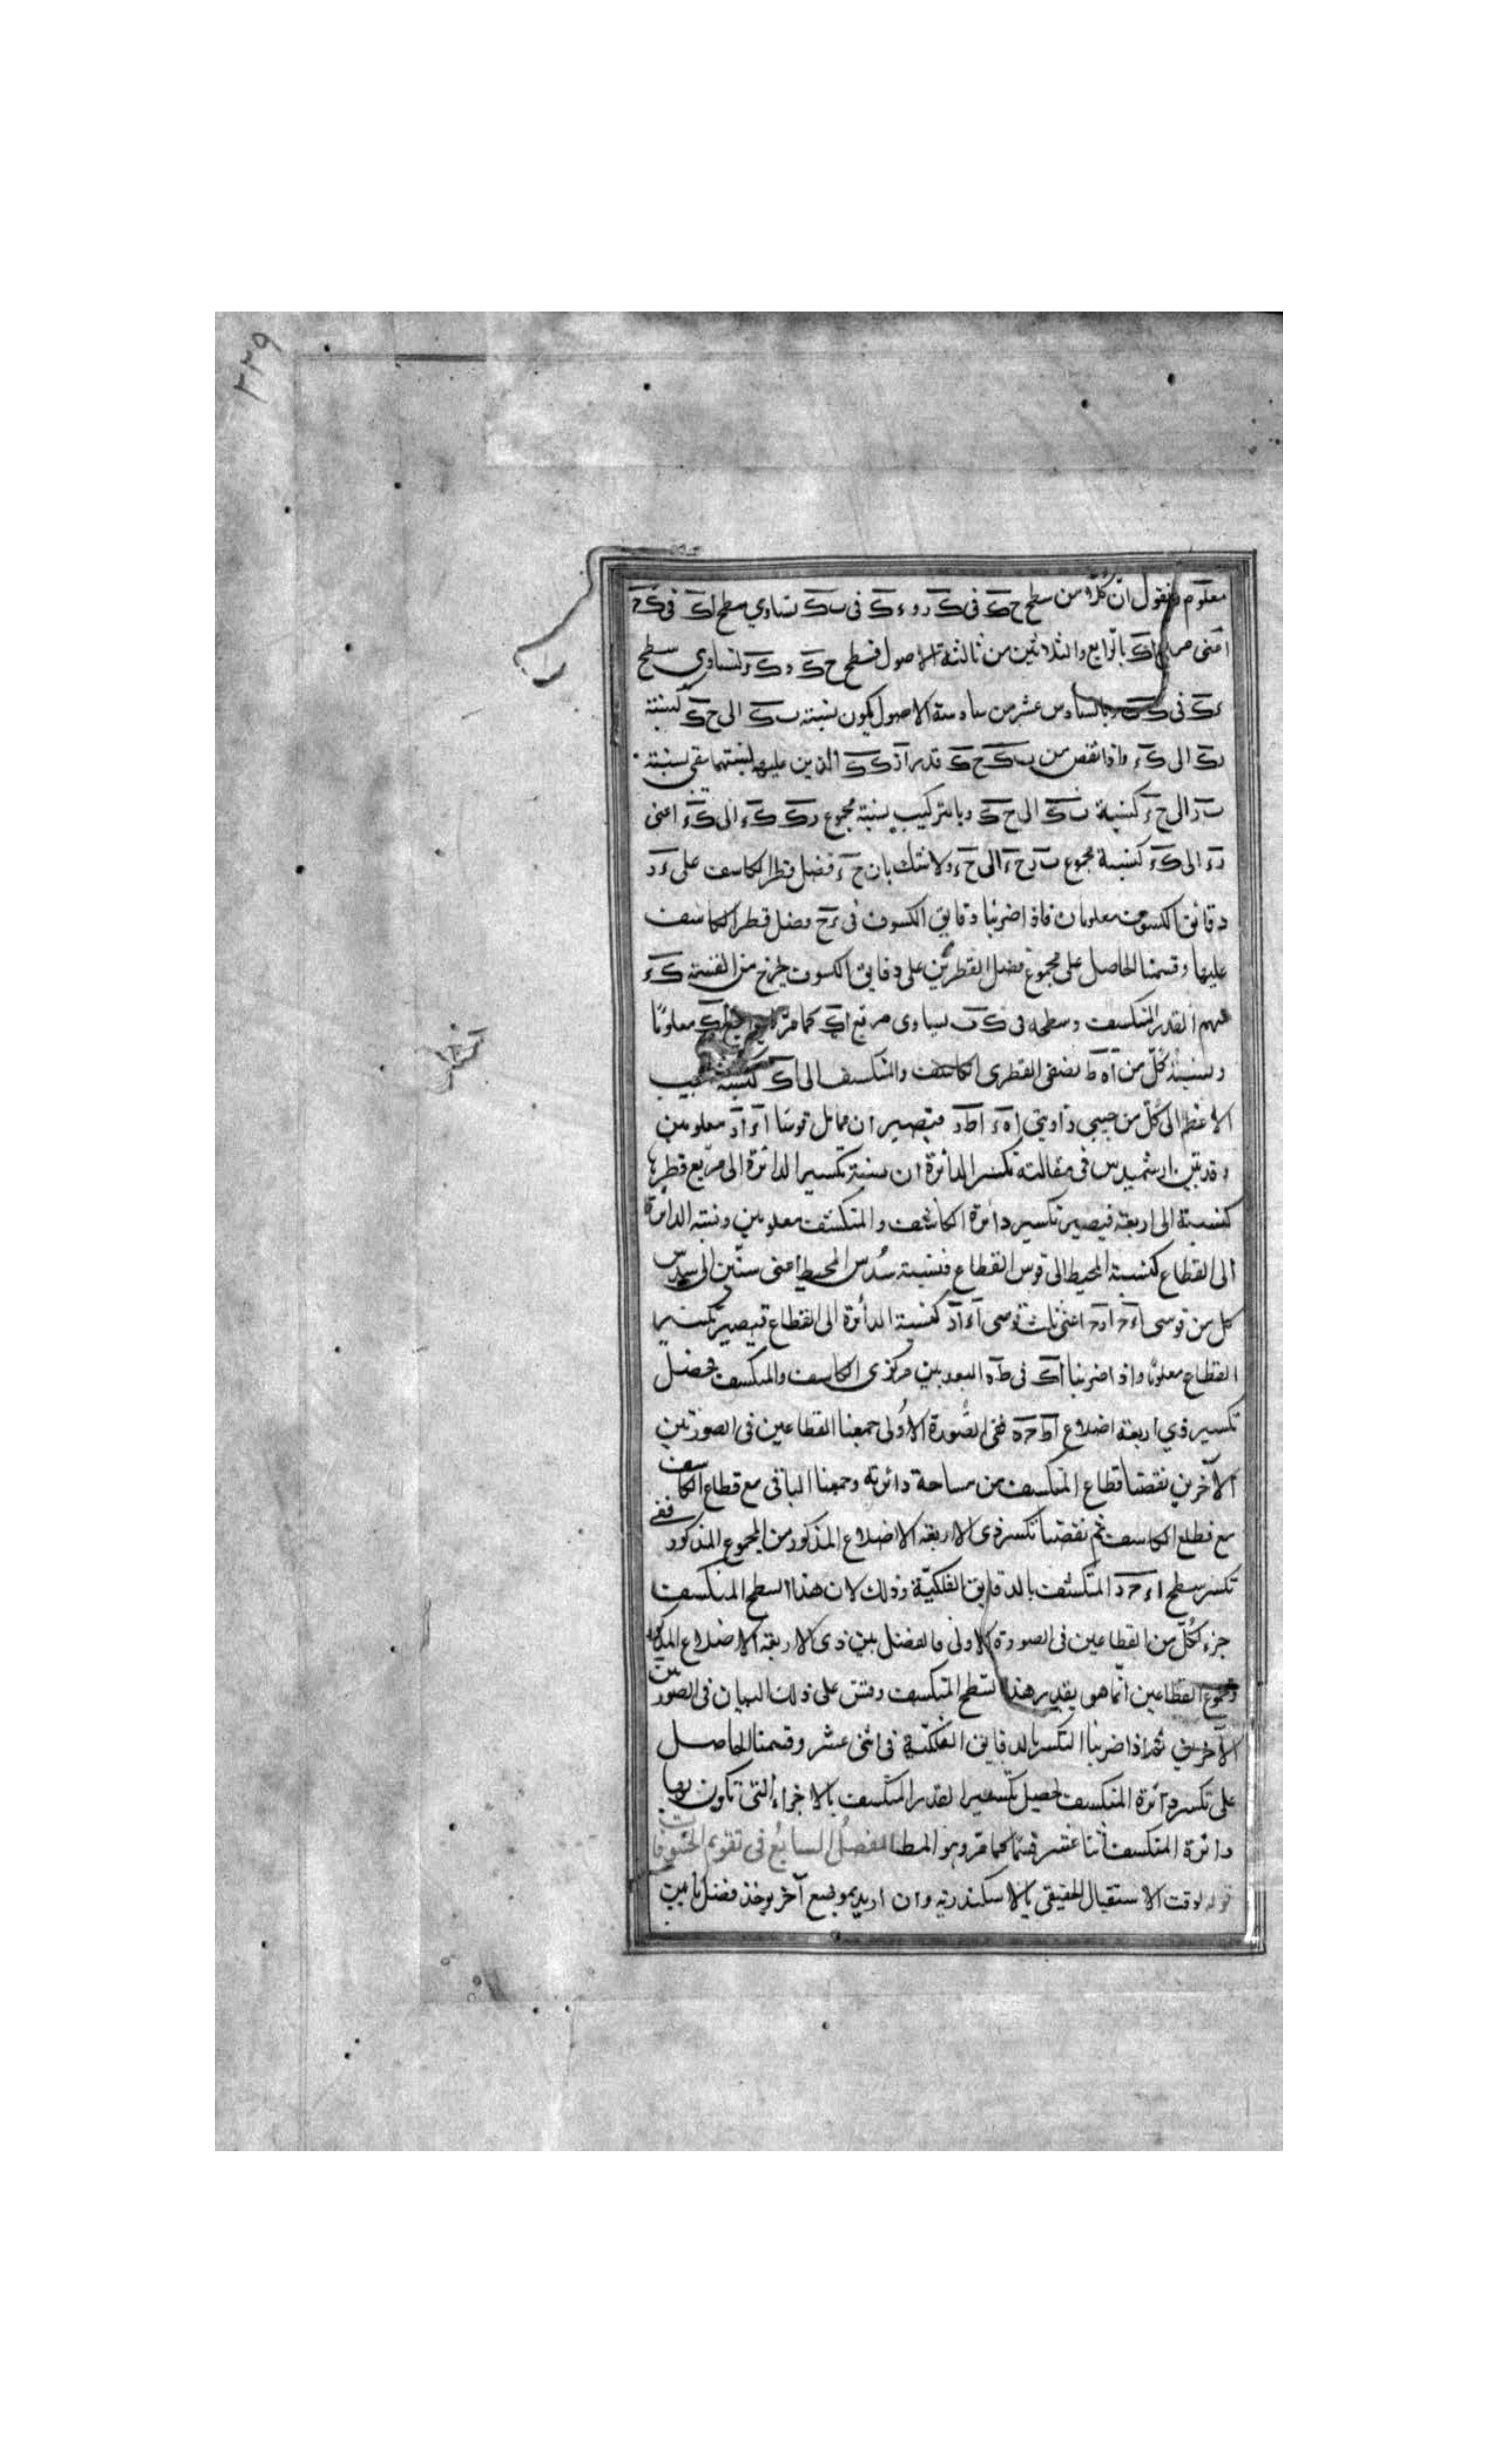 ٢٢٩
معلوم فنقول ان كلّا من سطح ح ك في ك ز و ء ك في ب ك تساوي سطح ا ك في ك ح
اعنى مربع ا ك بالرابع والثلاثين من ثالثة الاصول فسطح ح ك و ك ز لتساوي سطح
ء ك في ب ك وبالسادس عشر من سادسة الاصول يكون نسبته ب ك الى ح ك كنسبته
ز ك الى ك ء واذا نقص من ب ك ح ك قدر ز ك ك ء الذين عليهما لنسبتهما بقى نسبته
ب ز الى ح ء كنسبة ب ك الى ح ك وبالتركيب نسبته مجموع ز ك ك ء الى ك ء اعنى
ز ء الى ك ء كنسبة مجموع ب ز ح ء الى ح ء ولا شك بان ح ء فضل قطر الكاسف على ء ز
دقائق الكسوف معلومان فاذا ضربنا دقايق الكسوف في ء ح فضل قطر الكاسف
عليها وقسمنا الحاصل على مجموع فضل القطرين على دقايق الكسوف يخرج من القسمة ك ء
سهم القدر المنكسف وسطحه في ك ب يساوى مربع ا ك كما مرّ ا ك معلومًا
ونسبة كلّ من ا ه ا ط نصفى القطرى الكاسف والمنكسف الى ا ك كنسبة جيب
الاعظم الى كلّ من جيبي زاويتي ا ه ء ا ط د فيصيران مماثل قوسا ا ء ا د معلومين
وقد بيّن ارشميدس في مقالته تكسر الدائرة ان نسبة تكسير الدائرة الى مربّع قطرها
كنسبة الى اربعة فيصير تكسير دائرة الكاسف والمنكسف معلومين ونسبته الدائرة
الى القطاع كنسبة المحيط الى قوس القطاع فنسبته سُدس المحيط اعنى ستّين الى سدس
كل من قوسى ا ء ح ا د ح اعنى ثلث قوسى ا ء ا د كنسبة الدائرة الى القطاع فيصير تكسير
القطاع معلومًا واذا ضربنا ا ك في ط ه البعد بين مركزى الكاسف والمنكسف يحصل
تكسير ذي اربعة اضلاع ا ط ح ه ففى الصّورة الاولى جمعنا القطاعين في الصورتين
الآخرين نقصنا قطاع المنكسف من مساحة دائرته وجمعنا الباقى مع قطاع الكاسف
مع قطاع الكاسف ثم نقصنا تكسير ذى الاربعة الاضلاع المذكور من المجموع المذكور ففى
تكسر سطح ا ء ح د المنكسف بالدقايق الفلكيّة وذلك لان هذا السطح المنكسف
جزء لكلّ من القطاعين في الصورة الاولى فالفضل بين ذى الاربعة الاضلاع المذكور
ومجموع القطاعين انّما هو بقدر هذا السطح المنكسف وقس على ذلك البيان في الصورتين
الآخرين ثم اذا ضربنا التكسر بالدقايق الفلكيّة في اثنى عشر وقسمنا الحاصل
على تكسر دائرة المنكسف يحصل تكسير القدر المنكسف بالاجزاء التى تكون بها
دائرة المنكسف اثنا عشر قسمًا كما مرّ وهو المط الفصلُ السابعُ في تقويم الخسوفات
قوله لوقت الاستقبال الحقيقى بالاسكندريّة وان اريد بموضع آخر يوخذ فضل ما بين